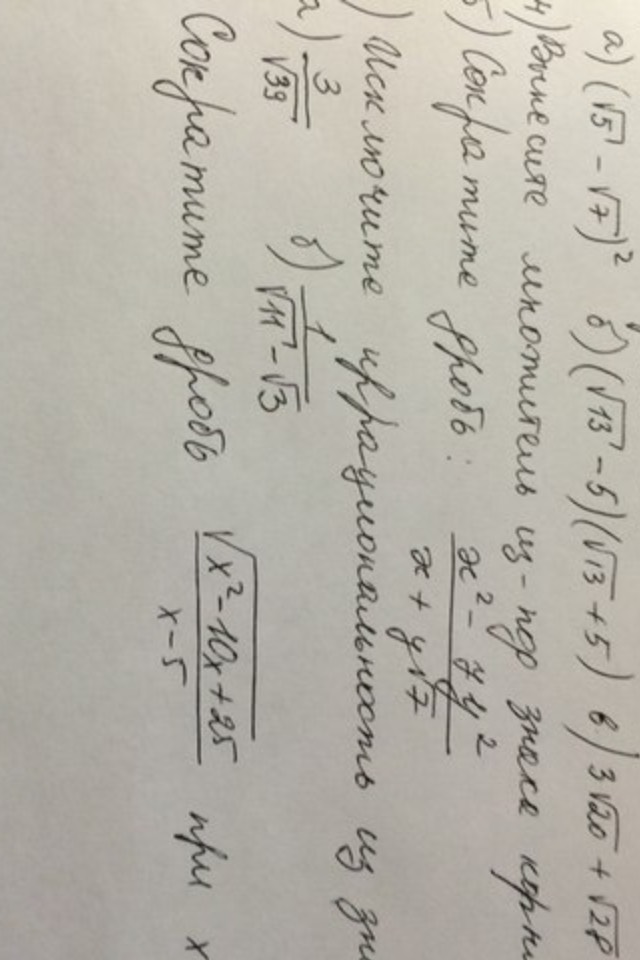 а) (√5 - √7)² б) (√13 - 5)(√13 + 5) в) 3√20 + √28
4) Вынесите множитель из-под знака корн
5) Сократите дробь: (x² - 7y²)/(x + y√7)
) Исключите иррациональность из зн
а) 3/√39 б) 1/(√11 - √3)
Сократите дробь √(x² - 10x + 25)/(x - 5) при x